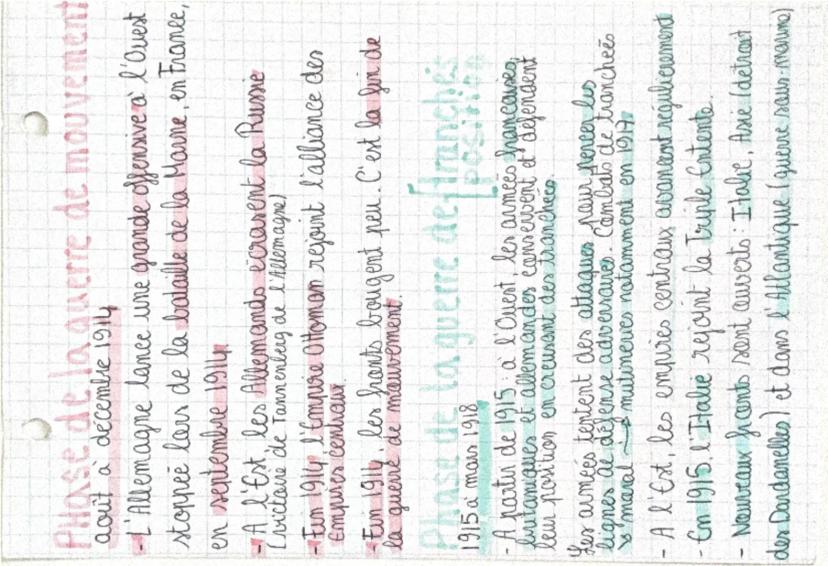 Phase de la guerre de mouvement
août à décembre 1914
- L'Allemagne lance une grande offensive à l'Ouest
stoppée lors de la bataille de la Marne, en France,
en septembre 1914
- A l'Est, les Allemands écrasent la Russie
(victoire de Tannenberg de l'Allemagne)
- Fin 1914, l'Empire Ottoman rejoint l'alliance des
Empires centraux.
- Fin 1914, les fronts bougent peu. C'est la fin de
la guerre de mouvement.
Phase de la guerre de [tranchés
position
1915 à mars 1918
- A partir de 1915, à l'Ouest, les armées françaises,
britanniques et allemandes conservent et défendent
leur position en creusant des tranchées.
Les armées tentent des attaques pour percer les
lignes de défense adversaires. Combats de tranchées
↘ moral → mutineries notamment en 1917.
- A l'Est, les empires centraux avancent régulièrement
- En 1915, l'Italie rejoint la Triple Entente.
- Nouveaux fronts sont ouverts : Italie, Asie (détroit
des Dardanelles) et dans l'Atlantique (guerre sous-marine)